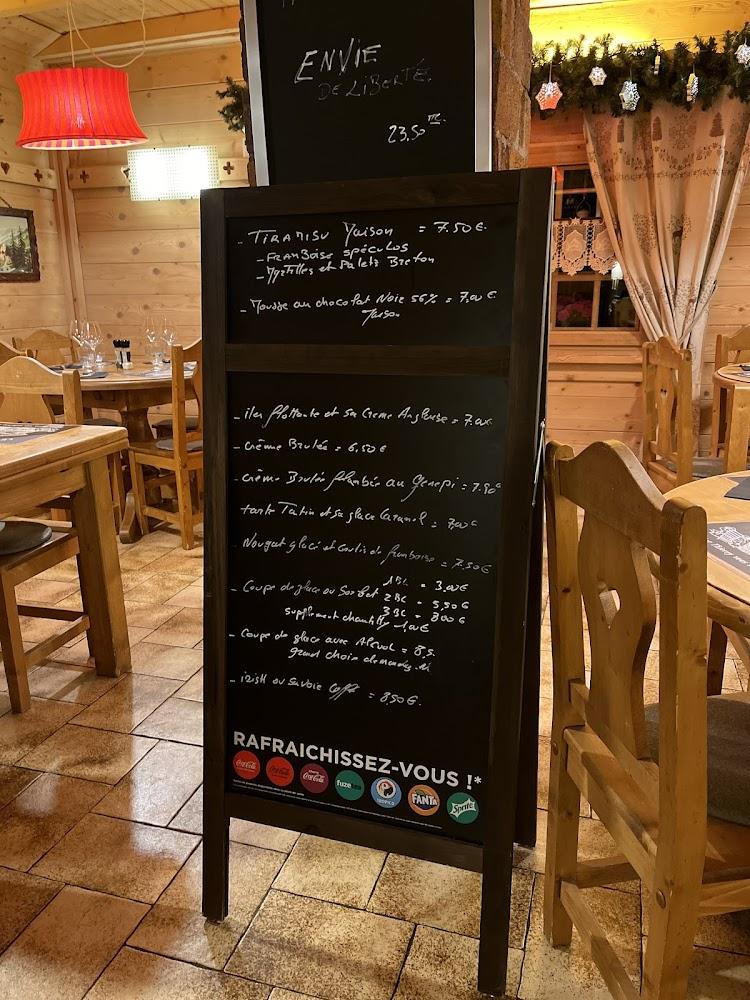 ENVIE
DE LIBERTÉ
23,50
- TIRAMISU Maison = 7.50€
- FRAMBOISE SPÉCULOS
- Myrtilles et Palets Breton
- Mousse au chocolat Noir 56% = 7,00€
Maison
- iles flottante et sa Creme Anglaise = 7.00€
- crème Brulée = 6,50€
- crème Brulée flambée au genepi = 7.90€
tarte Tatin et sa glace Caramel = 7,00€
Nougat glacé et coulis de framboise = 7.50€
1BL = 3,00€
- Coupe de glace ou Sorbet 2BL = 5,50€
3BL = 8,00€
supplément chantilly 1,00€
- Coupe de glace avec Alcool = 8,5.
grand choix demandez
- irish ou Savoie Coffe = 8,50€.
RAFRAICHISSEZ-VOUS !*
Coca-Cola Coca-Cola Coca-Cola fuzetea TROPICO FANTA Sprite